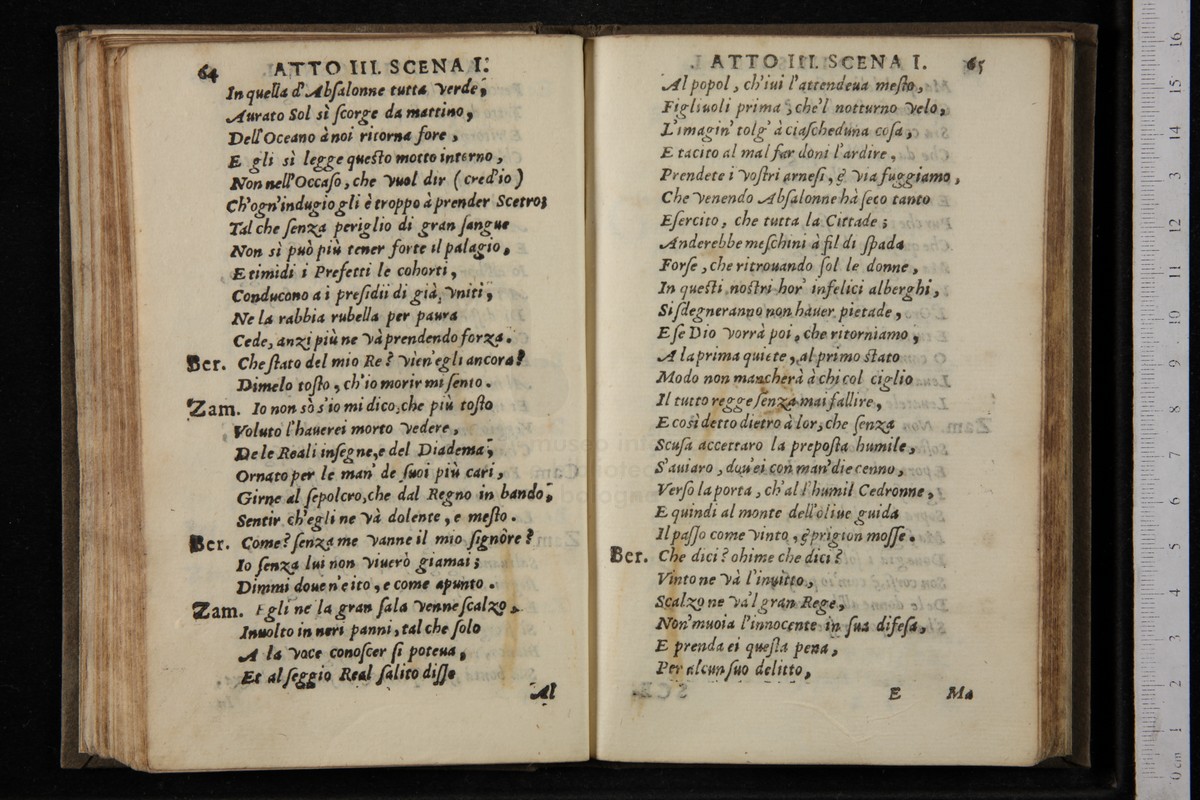 64 ATTO III. SCENA I.
In quella d'Abſalonne tutta verde,
Aurato Sol sì ſcorge da mattino,
Dell'Oceano à noi ritorna fore,
E gli sì legge queſto motto interno,
Non nell'Occaſo, che vuol dir (cred'io)
Ch'ogn'indugio gli è troppo à prender Scetro;
Tal che ſenza periglio di gran ſangue
Non sì può più tener forte il palagio,
E timidi i Prefetti le cohorti,
Conducono a i preſidii di già, vniti,
Ne la rabbia rubella per paura
Cede, anzi più ne và prendendo forza.
Ber. Che ſtato del mio Re? vien'egli ancora?
Dimelo toſto, ch'io morir mi ſento.
Zam. Io non sò s'io mi dico, che più toſto
Voluto l'hauerei morto vedere,
De le Reali inſegne, e del Diadema,
Ornato per le man' de ſuoi più cari,
Girne al ſepolcro, che dal Regno in bando,
Sentir ch'egli ne và dolente, e meſto.
Ber. Come? ſenza me vanne il mio ſignóre?
Io ſenza lui non viuerò giamai;
Dimmi doue n'è ito, e come apunto.
Zam. Egli ne la gran ſala venne ſcalzo,
Inuolto in neri panni, tal che ſolo
A la voce conoſcer ſi poteua,
Et al ſeggio Real ſalito diſſe
Al
ATTO III. SCENA I. 65
Al popol, ch'iui l'attendeua meſto,
Figliuoli prima, che'l notturno velo,
L'imagin' tolg' à ciaſcheduna coſa,
E tacito al mal far doni l'ardire,
Prendete i voſtri arneſi, & via fuggiamo,
Che venendo Abſalonne hà ſeco tanto
Eſercito, che tutta la Cittade;
Anderebbe meſchini à fil di ſpada
Forſe, che ritrouando ſol le donne,
In queſti noſtri hor' infelici alberghi,
Si ſdegneranno non hauer pietade,
E ſe Dio vorrà poi, che ritorniamo,
A la prima quiete, al primo ſtato
Modo non mancherà à chi col ciglio
Il tutto regge ſenza mai fallire,
E così detto dietro à lor, che ſenza
Scuſa accettaro la prepoſta humile,
S'auiaro, dou'ei con man' die cenno,
Verſo la porta, ch'al l'humil Cedronne,
E quindi al monte dell'oliue guida
Il paſſo come vinto, & prigion moſſe.
Ber. Che dici? ohime che dici?
Vinto ne và l'inuitto,
Scalzo ne và'l gran Rege,
Non' muoia l'innocente in ſua difeſa,
E prenda ei queſta pena,
Per alcun ſuo delitto,
E Ma